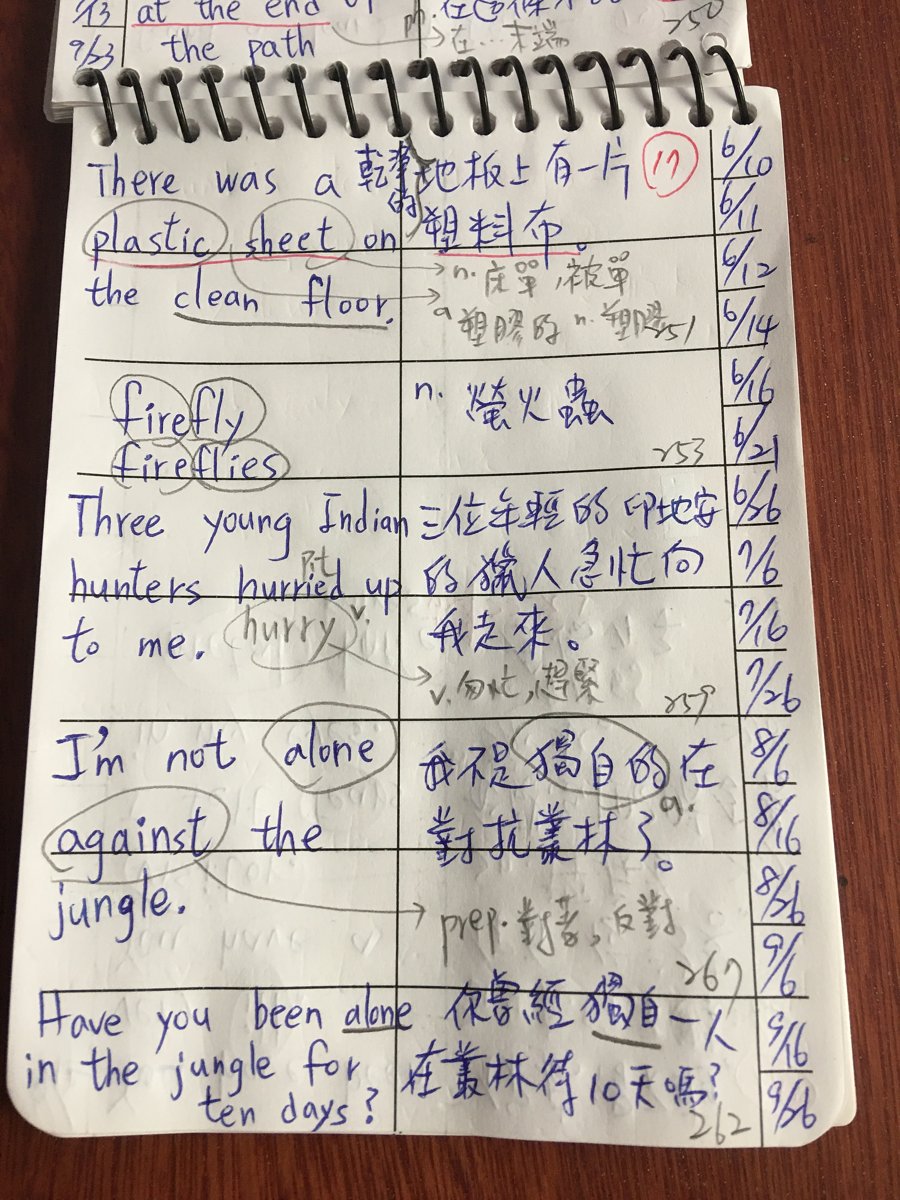 9/13 at the end of
9/23 the path
pp. 在
在…末端
250
There was a 乾淨的 地板上有一片 17
plastic sheet on 塑料布。
the clean floor.
n. 床單,被單
a 塑膠的 n. 塑膠 251
firefly n. 螢火蟲
fireflies 253
Three young Indian 三位年輕的印地安
hunters hurried up 的獵人急忙向
p.t
to me. hurry v. 我走來。
v. 匆忙,趕緊 259
I'm not alone 我不是獨自的在
a.
against the 對抗叢林了。
jungle.
prep. 對著,反對
267
Have you been alone 你曾經獨自一人
in the jungle for 在叢林待10天嗎?
ten days? 262
6/10
6/11
6/12
6/14
6/16
6/21
6/26
7/6
7/16
7/26
8/6
8/16
8/26
9/6
9/16
9/26